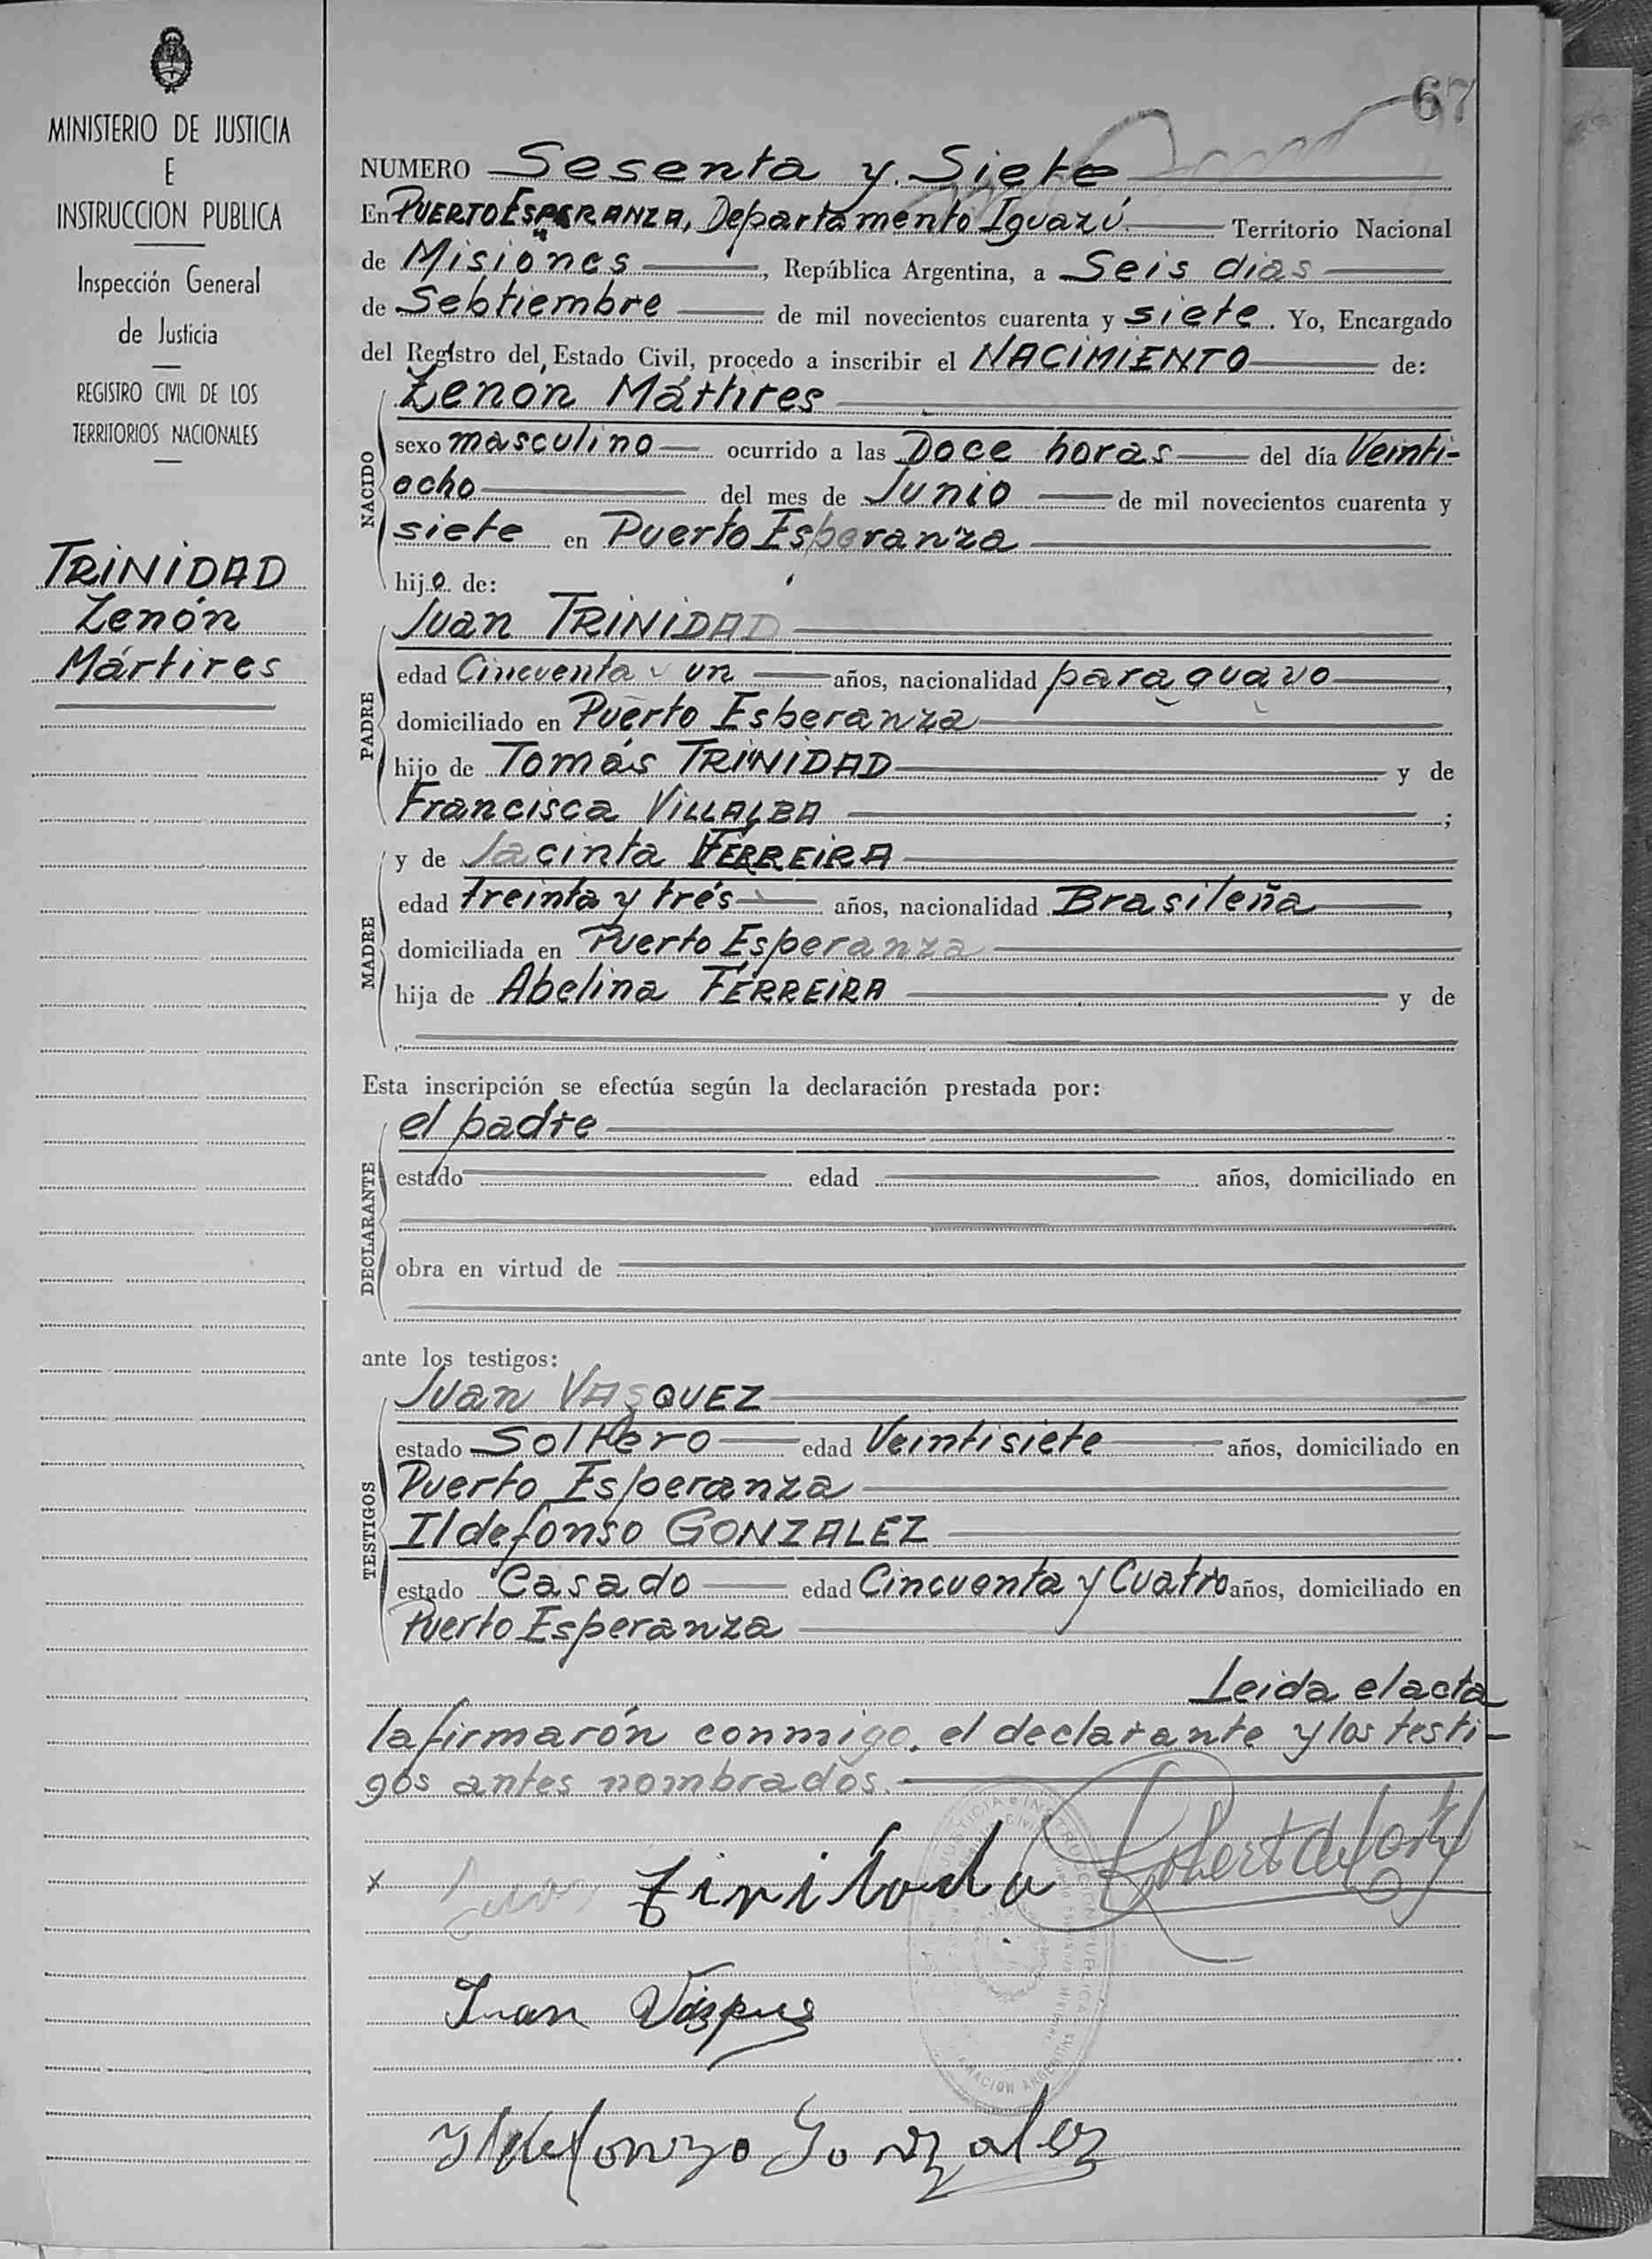 MINISTERIO DE JUSTICIA
E
INSTRUCCION PUBLICA
Inspección General
de Justicia
REGISTRO CIVIL DE LOS
TERRITORIOS NACIONALES
TRINIDAD
Zenón
Mártires
67
NUMERO Sesenta y Siete
En PUERTO ESPERANZA, Departamento Iguazú Territorio Nacional
de Misiones, República Argentina, a Seis dias
de Sebtiembre de mil novecientos cuarenta y siete. Yo, Encargado
del Registro del Estado Civil, procedo a inscribir el NACIMIENTO de:
NACIDO
Zenón Mártires
sexo masculino ocurrido a las Doce horas del día Veinti-
ocho del mes de Junio de mil novecientos cuarenta y
siete en Puerto Esperanza
hijo de:
PADRE
Juan TRINIDAD
edad Cincuenta y un años, nacionalidad paraguayo,
domiciliado en Puerto Esperanza
hijo de Tomás TRINIDAD y de
Francisca VILLALBA ;
MADRE
y de Jacinta FERREIRA
edad treinta y trés años, nacionalidad Brasileña,
domiciliada en Puerto Esperanza
hija de Abelina FERREIRA y de
Esta inscripción se efectúa según la declaración prestada por:
DECLARANTE
el padre
estado edad años, domiciliado en
obra en virtud de
ante los testigos:
TESTIGOS
Juan VASQUEZ
estado Soltero edad Veintisiete años, domiciliado en
Puerto Esperanza
Ildefonso GONZALEZ
estado Casado edad Cincuenta y Cuatro años, domiciliado en
Puerto Esperanza
Leida el acta
la firmarón conmigo, el declarante y los testi-
gos antes nombrados.
x Juan
Juan Vasques
Yldefonzo Gonzalez